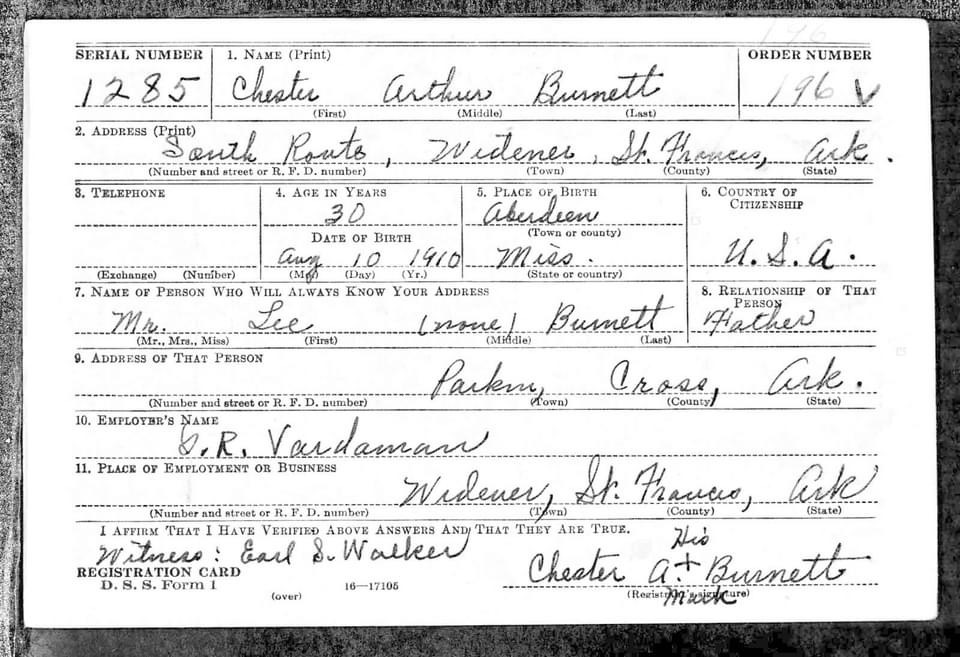 176
SERIAL NUMBER 1. NAME (Print) ORDER NUMBER
1285 Chester Arthur Burnett 196 V
(First) (Middle) (Last)
2. ADDRESS (Print)
South Route, Widener, St. Francis, Ark.
(Number and street or R. F. D. number) (Town) (County) (State)
3. TELEPHONE 4. AGE IN YEARS 5. PLACE OF BIRTH 6. COUNTRY OF
CITIZENSHIP
30 Aberdeen
DATE OF BIRTH (Town or county)
Aug 10 1910 Miss. U.S.A.
(Exchange) (Number) (Mo.) (Day) (Yr.) (State or country)
7. NAME OF PERSON WHO WILL ALWAYS KNOW YOUR ADDRESS 8. RELATIONSHIP OF THAT
PERSON
Mr. Lee (none) Burnett Father
(Mr., Mrs., Miss) (First) (Middle) (Last)
9. ADDRESS OF THAT PERSON
Parkin, Cross, Ark.
(Number and street or R. F. D. number) (Town) (County) (State)
10. EMPLOYER'S NAME
R. Vardaman
11. PLACE OF EMPLOYMENT OR BUSINESS
Widener, St. Francis, Ark
(Number and street or R. F. D. number) (Town) (County) (State)
I AFFIRM THAT I HAVE VERIFIED ABOVE ANSWERS AND THAT THEY ARE TRUE.
Witness: Earl S. Walker His
REGISTRATION CARD Chester A. + Burnett
D. S. S. Form 1 16—17105 (Registrant's signature)
(over) Mark